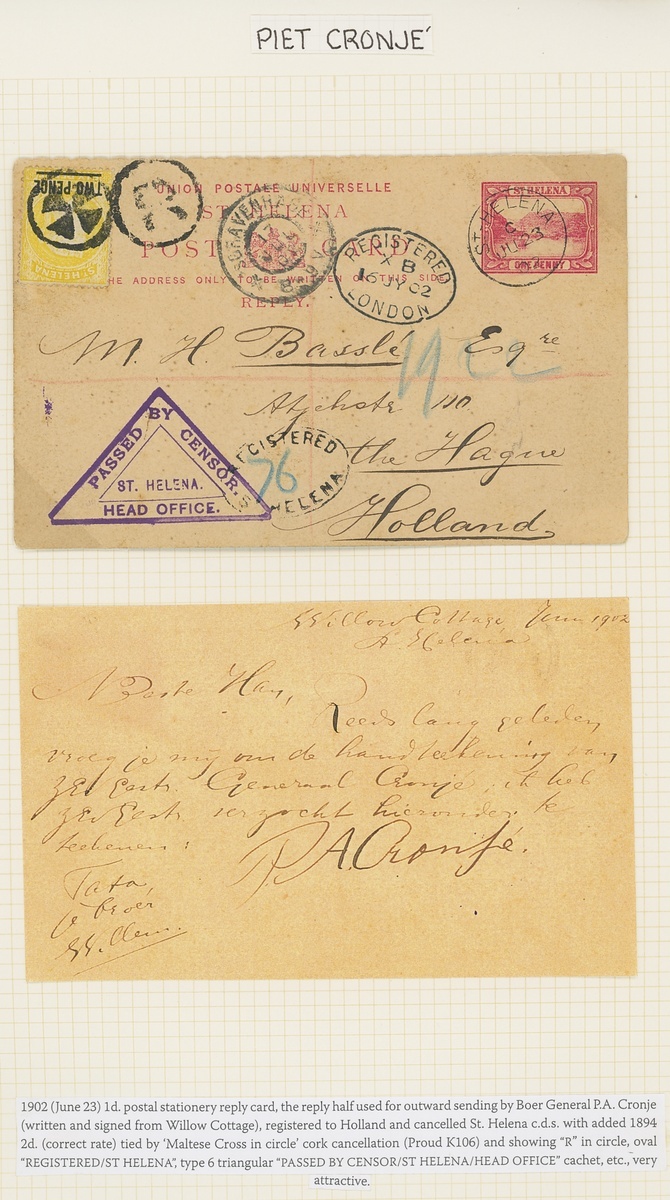 PIET CRONJÉ
TWO PENCE
ST HELENA
UNION POSTALE UNIVERSELLE
ST HELENA
POST CARD
THE ADDRESS ONLY TO BE WRITTEN ON THIS SIDE
REPLY.
ST. HELENA
ONE PENNY
ST. HELENA
C
JU 23
REGISTERED
X B
16 JY 02
LONDON
M. H. Basslé Esqre
110
the Hague
Holland.
PASSED BY CENSOR.
ST. HELENA.
HEAD OFFICE.
REGISTERED
76
ST HELENA
Willow Cottage Juni 1902
St Helena
Beste Han,
Reeds lang geleden
vroeg je mij om de handteekening van
Generaal Cronjé, ik heb
verzocht hieronder te
teekenen:
P.A. Cronjé.
Tata,
je broer
Willem.
1902 (June 23) 1d. postal stationery reply card, the reply half used for outward sending by Boer General P.A. Cronje
(written and signed from Willow Cottage), registered to Holland and cancelled St. Helena c.d.s. with added 1894
2d. (correct rate) tied by 'Maltese Cross in circle' cork cancellation (Proud K106) and showing "R" in circle, oval
"REGISTERED/ST HELENA", type 6 triangular "PASSED BY CENSOR/ST HELENA/HEAD OFFICE" cachet, etc., very
attractive.